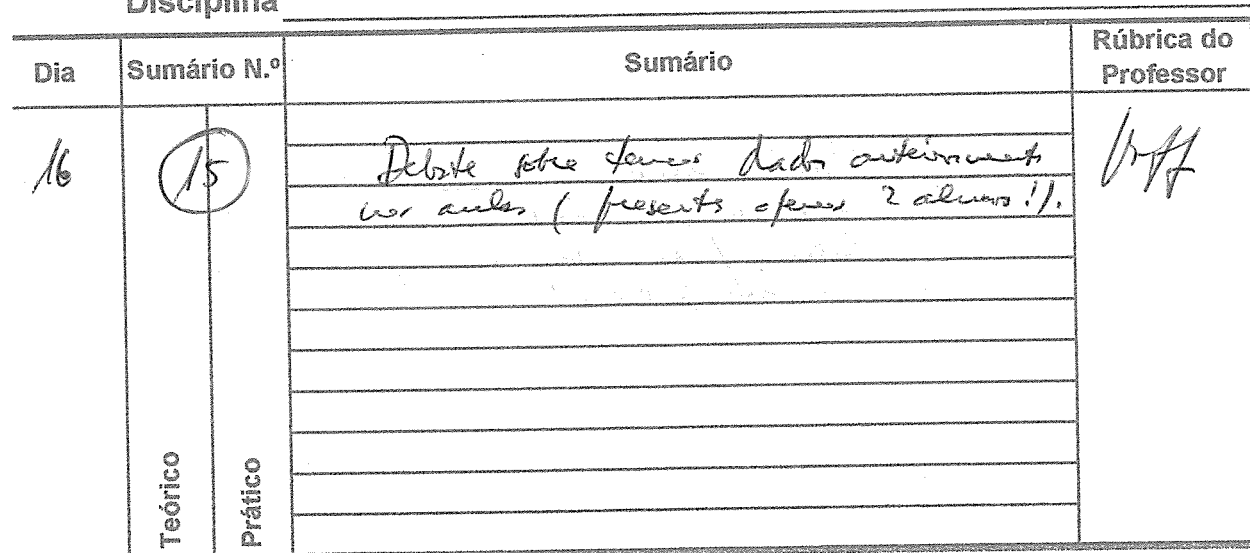 Disciplina
Dia
Sumário N.º
Sumário
Rúbrica do
Professor
16
15
Debate sobre temas dados anteriormente
nas aulas (presents apenas 2 alunos!).
Teórico
Prático